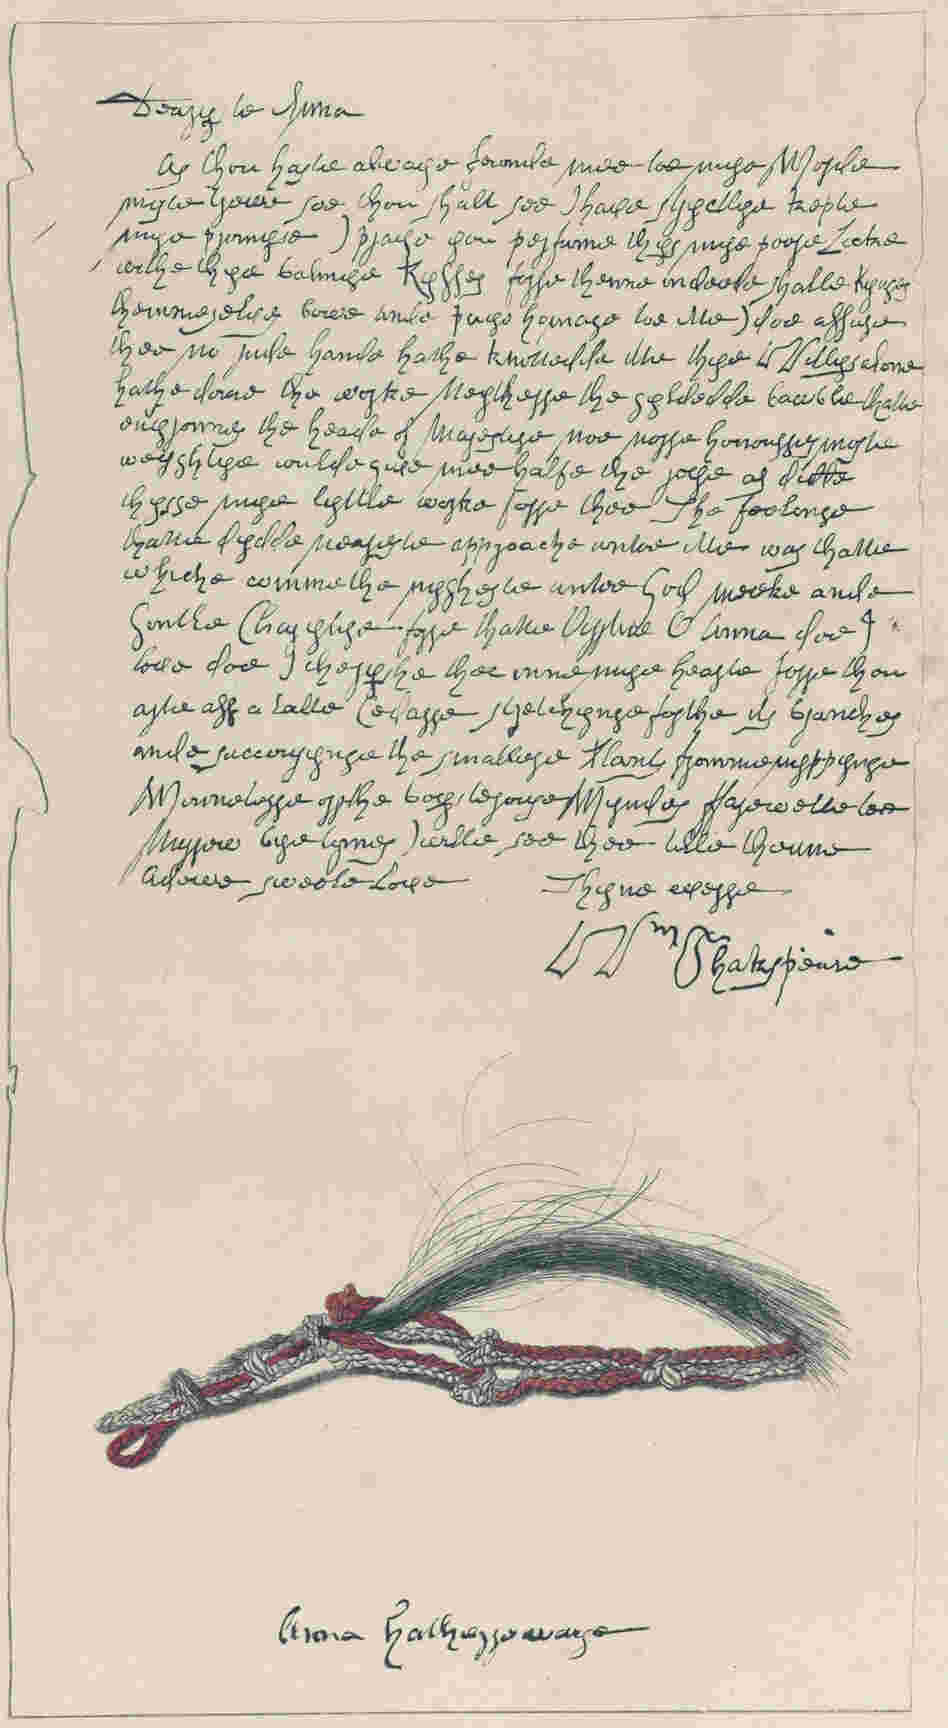 Dearesste Anna
As thou haste alwaye founde mee toe mye Worde
moste trewe soe thou shalt see I have stryctlye kepte
mye promyse I praye you perfume thys mye poore Locke
withe thye balmye Kysses forre thenne indeede shalle Kynges
themmeselves bowe ande paye homage toe itte I doe assure
thee no rude hande hathe knottedde itte thye Willys alone
hathe done the worke Neytherre the gyldedde bawble thatte
envyronnes the heade of Majestye noe norre honourres moste
weyghtye wulde give mee halfe the joye as didde
thysse mye lyttle worke forre thee The feelinge
thatte dydde neareste approache untoe itte was thatte
whiche commethe nygheste untoe God meeke ande
Gentle Charytye forre thatte Virrtue O Anna doe I
love doe I cheryshe thee inne mye hearte forre thou
arte ass a talle Cedarre stretchynge forthe its branches
ande succourynge the smallere Plants fromme nyppynge
Winneterre orr the boysterouse Wyndes Farewelle toe
Morrow bye tymes I wille see thee tille thenne
Adewe sweete Love
Thyne everre
Wm Shakspeare
Anna Hatherrewaye